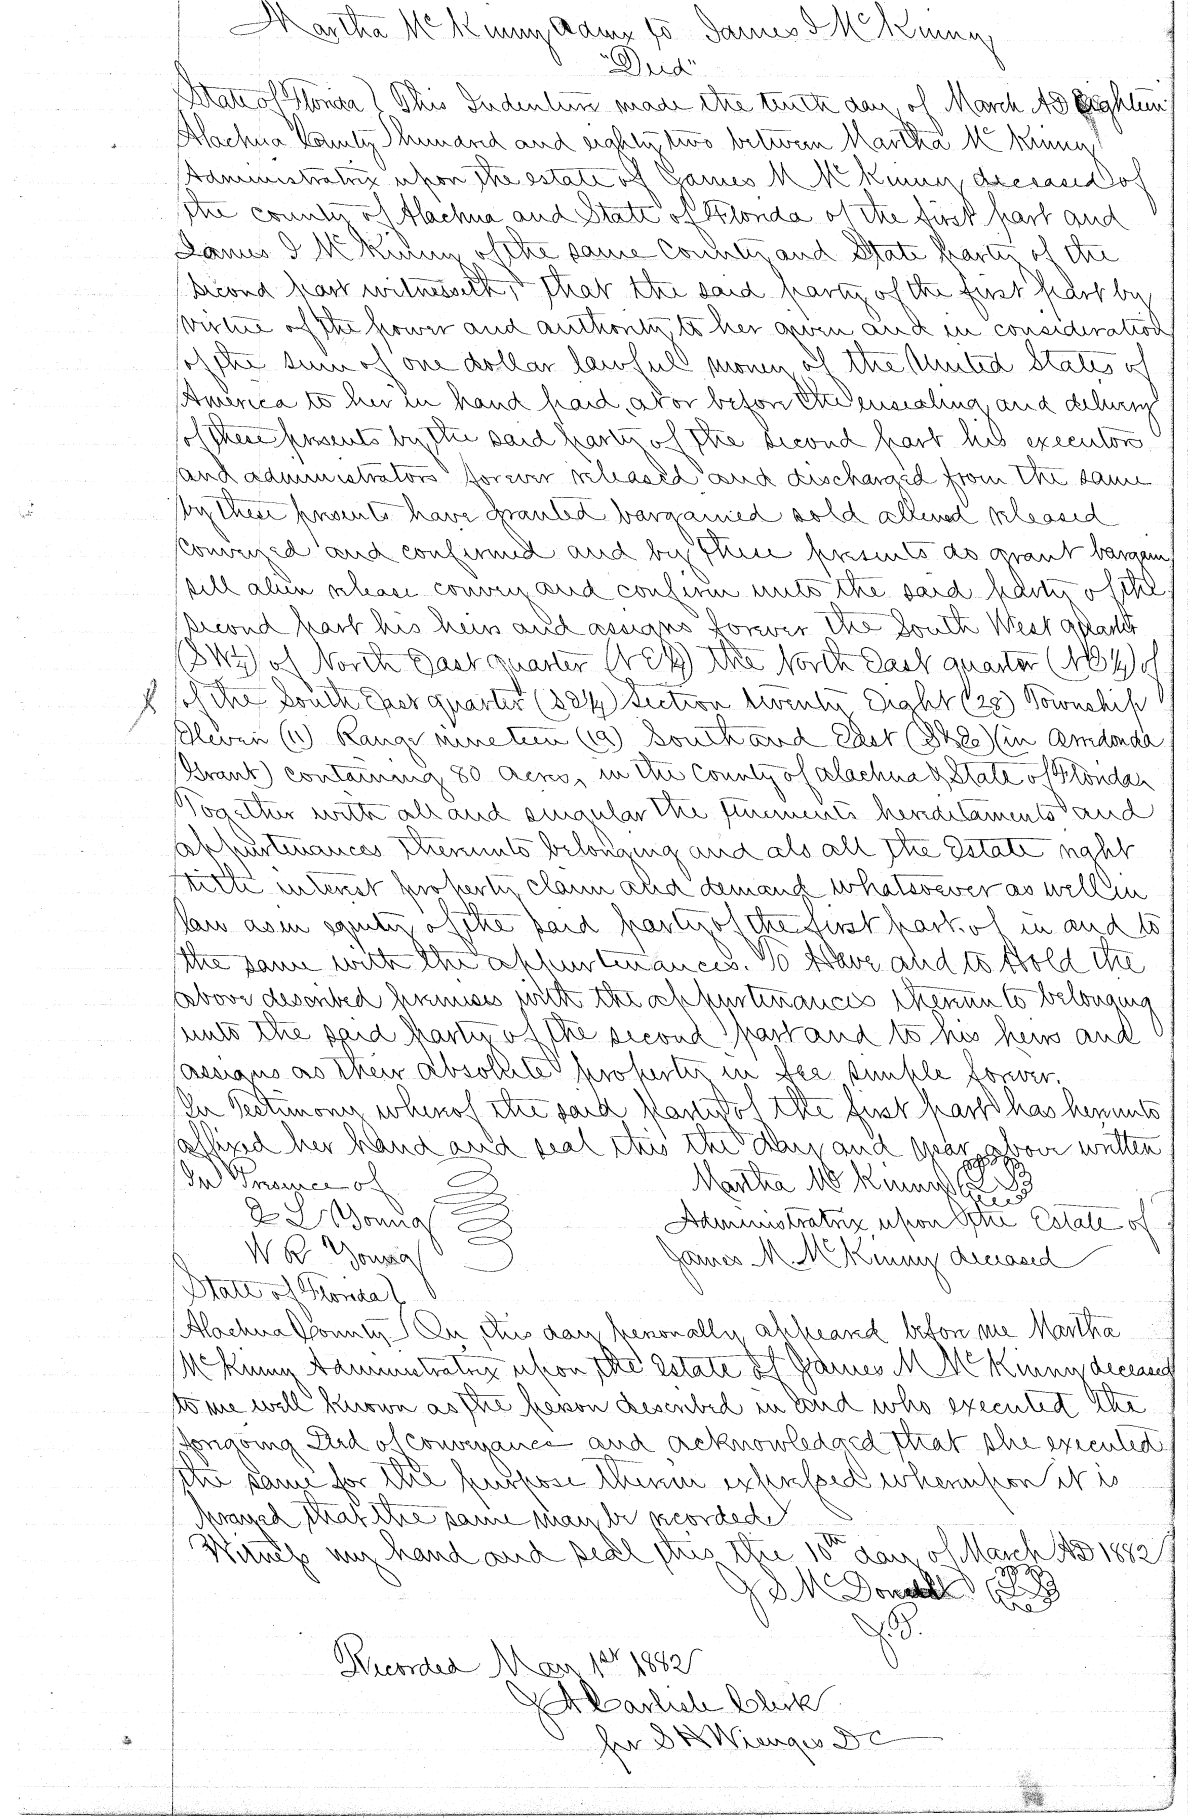 Martha McKinny Admx to James I McKinny
"Deed"
State of Florida } This Indenture made the tenth day of March AD Eighteen
Alachua County } hundred and eighty two between Martha McKinny
Administratrix upon the estate of James M McKinny deceased of
the county of Alachua and State of Florida of the first part and
James I McKinny of the same County and State party of the
second part witnesseth, that the said party of the first part by
virtue of the power and authority to her given and in consideration
of the sum of one dollar lawful money of the United States of
America to her in hand paid, at or before the ensealing and delivery
of these presents by the said party of the second part his executors
and administrators forever released and discharged from the same
by these presents have granted bargained sold aliened released
conveyed and confirmed and by these presents do grant bargain
sell alien release convey and confirm unto the said party of the
second part his heirs and assigns forever the South West quarter
(SW¼) of North East quarter (NE¼) the North East quarter (NE¼) of
of the South East quarter (SE¼) Section twenty Eight (28) Township
Eleven (11) Range nineteen (19) South and East (S&E) (in Arredonda
Grant) containing 80 acres, in the county of Alachua & State of Florida
Together with all and singular the tinements hereditaments and
appurtenances thereunto belonging and als all the Estate right
title interest property claim and demand whatsoever as well in
law as in equity of the said party of the first part. of in and to
the same with the appurtenances. To Have and to Hold the
above described premises with the appurtenances thereunto belonging
unto the said party of the second part and to his heirs and
assigns as their absolute property in fee simple forever.
In Testimony whereof the said party of the first part has hereunto
affixed her hand and seal this the day and year above written
In Presence of Martha McKinny (LS)
L Young Administratrix upon the Estate of
W R Young James M. McKinny deceased
State of Florida }
Alachua County } On this day personally appeared before me Martha
McKinny Administratrix upon the Estate of James M McKinny deceased
to me well known as the person described in and who executed the
forgoing Deed of conveyance and acknowledged that she executed
the same for the purpose therein expressed whereupon it is
prayed that the same may be recorded
Witness my hand and seal this the 10th day of March AD 1882
J S McDonald (LS)
J.P.
Recorded May 1st 1882
J A Carlisle Clerk
per S H Wienges DC